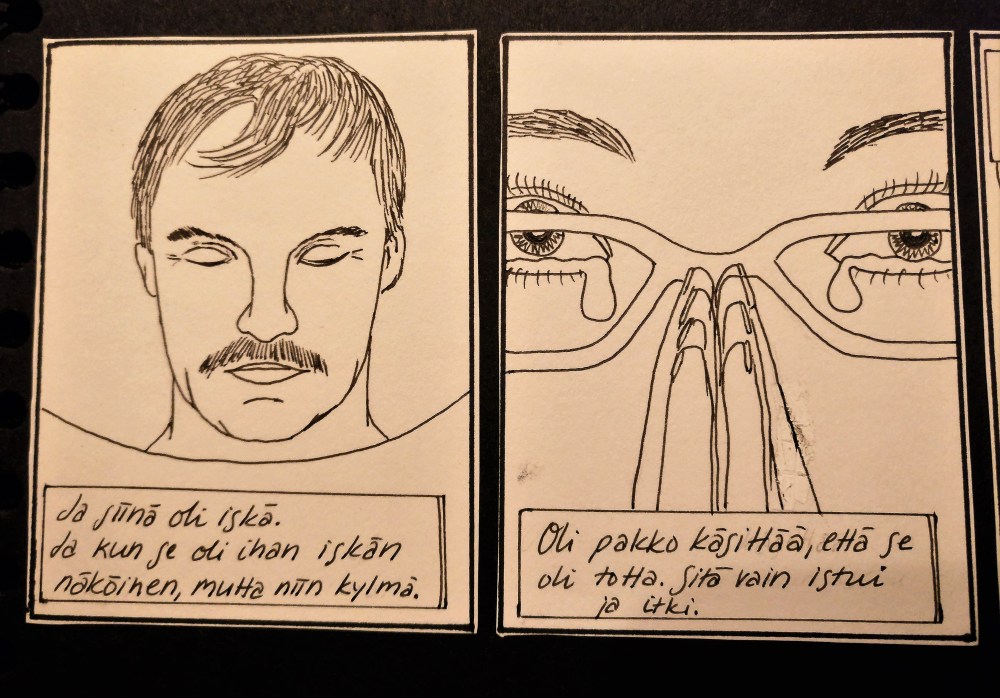 Ja siinä oli iskä.
Ja kun se oli ihan iskän
näköinen, mutta niin kylmä.
Oli pakko käsittää, että se
oli totta. Sitä vain istui
ja itki.